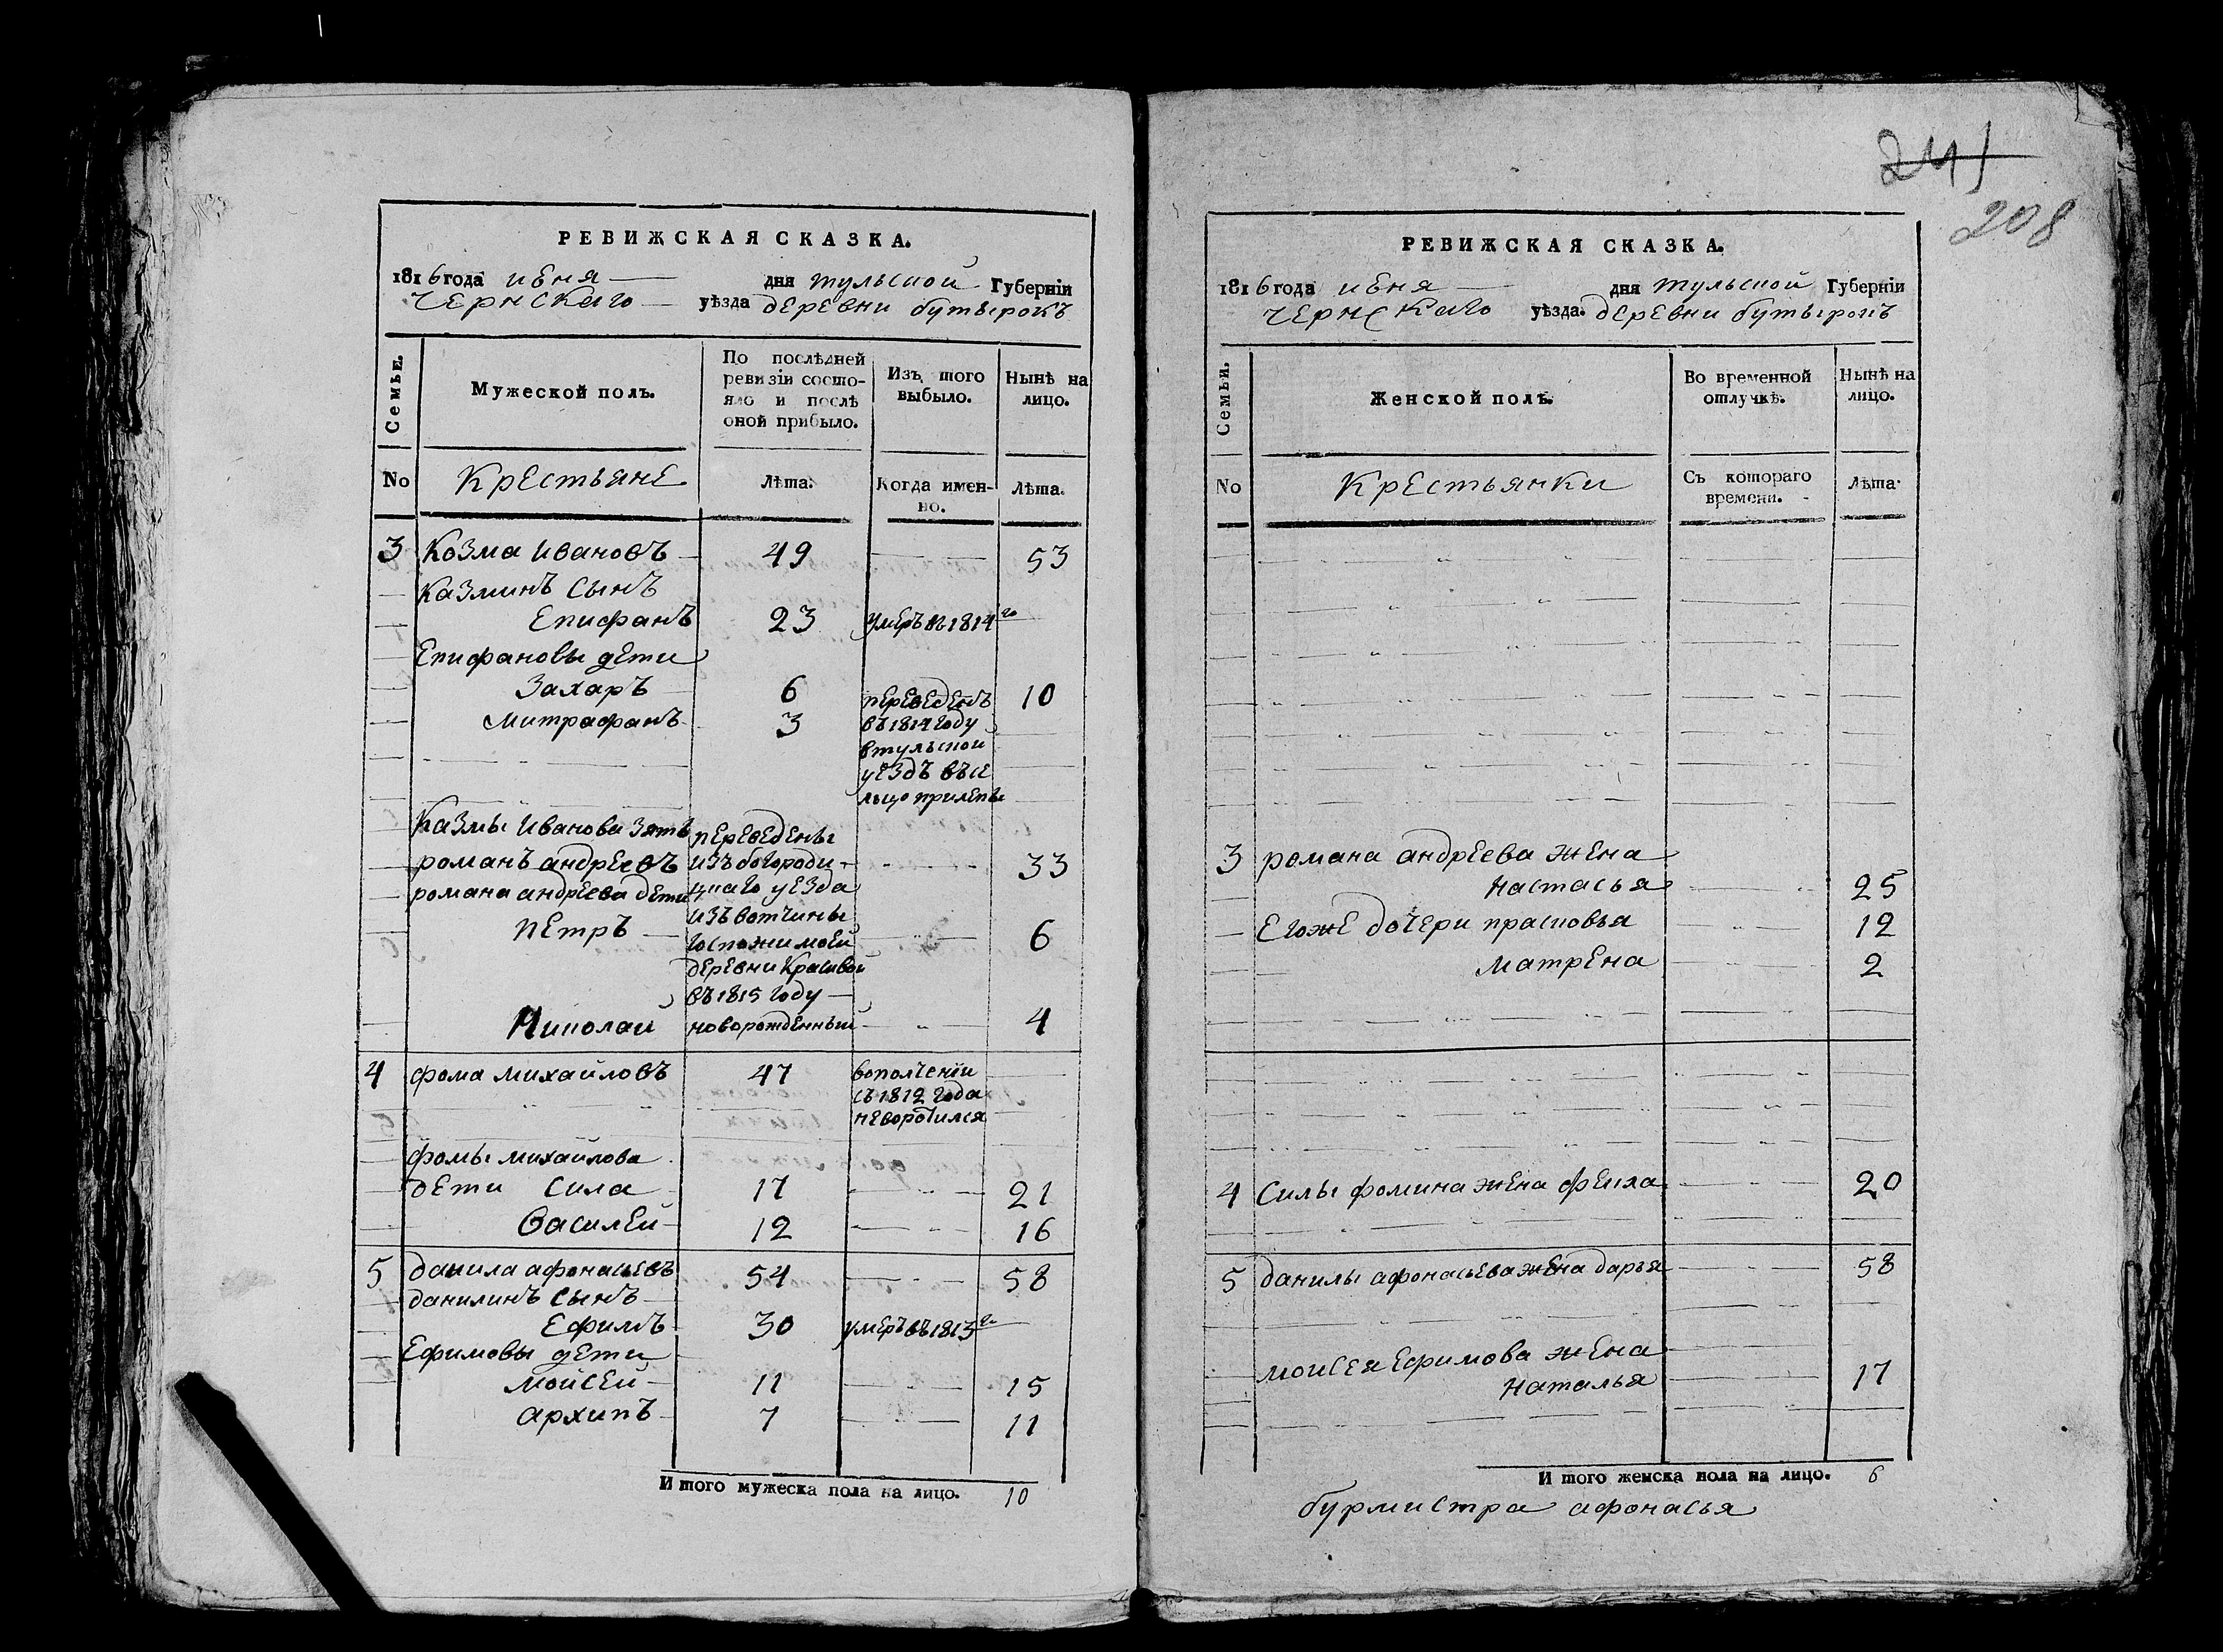 РЕВИЖСКАЯ СКАЗКА.
1816 года июня дня тульской Губерніи
чернскаго уѣзда деревни бутырокъ
Семьи.
Мужеской полъ.
По послѣдней ревизіи состояло и послѣ оной прибыло.
Изъ того выбыло.
Нынѣ на лицо.
No Крестьяне лѣта. Когда именно. лѣта.
3 Козма Ивановъ 49 53
Казминъ сынъ
Епифанъ 23 умеръ въ 1814го
Епифановы дети
Захаръ 6 10
Митрафанъ 3 переведенъ
въ 1814 году
втульской
уездъ въсе
льцо прилепы
Казмы Иванова зять
романъ андреевъ 33
романа андреева дети
переведены
изъ богороди-
цкаго уезда
изъ вотчины
госпожи моей
деревни Красивой
въ 1815 году
петръ 6
Николай новорожденный 4
4 фома михайловъ 47 вополчении
съ 1812 года
неворотился
фомы михайлова
дети сила 17 21
Василей 12 16
5 данила афонасьевъ 54 58
данилинъ сынъ
Ефимъ 30 умеръ въ 1813го
Ефимовы дети
мойсей 11 15
архипъ 7 11
И того мужеска пола на лицо. 10
241
208
РЕВИЖСКАЯ СКАЗКА.
1816 года июня дня тульской Губерніи
чернскаго уѣзда. деревни бутырокъ
Семьи.
Женской полъ.
Во временной отлучкѣ.
Нынѣ на лицо.
No Крестьянки Съ котораго времени. лѣта.
3 романа андреева жена
настасья 25
Егоже дочери прасковья 12
матрена 2
4 Силы фомина жена фекла 20
5 данилы афонасьева жена дарья 58
моисея Ефимова жена
наталья 17
И того женска пола на лицо. 6
бурмистра афонасья